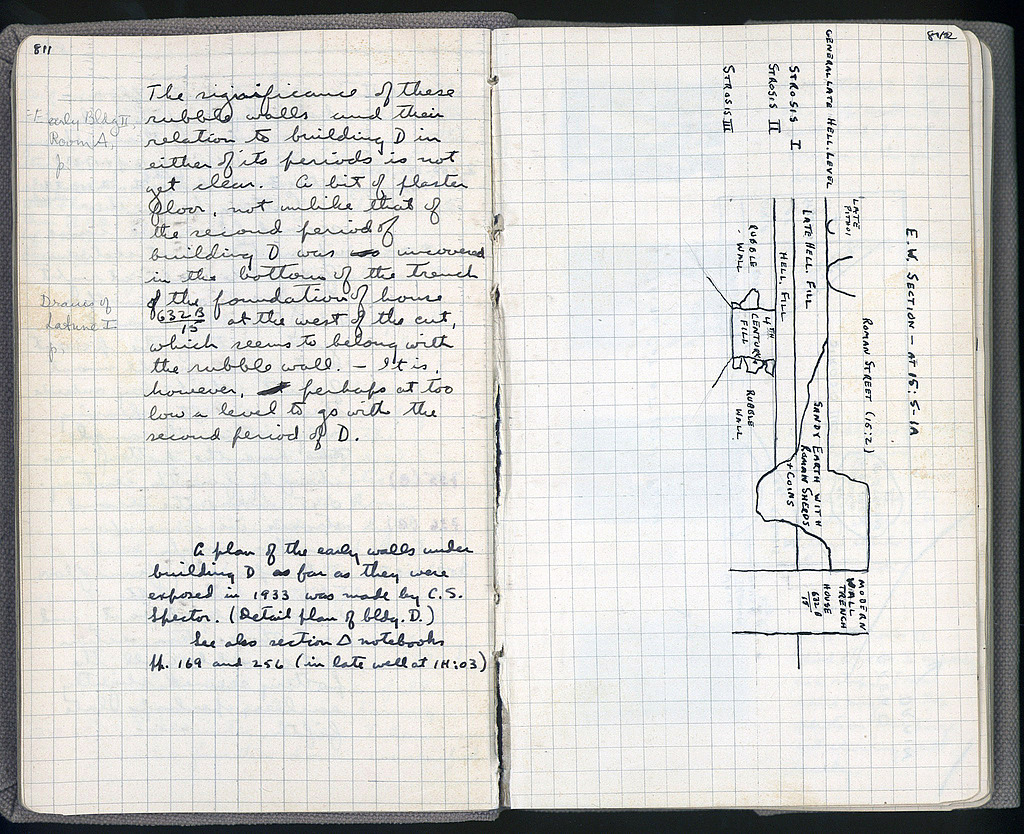 811
The significance of these
rubble walls and their
relation to building D in
either of its periods is not
yet clear. A bit of plaster
floor, not unlike that of
the second period of
building D was uncovered
in the bottom of the trench
of the foundation of house
632B/15 at the west of the cut,
which seems to belong with
the rubble wall. – It is,
however, perhaps at too
low a level to go with the
second period of D.
Early Bldg II,
Room A,
p.
Drains of
Latrine I
p.
A plan of the early walls under
building D as far as they were
exposed in 1933 was made by C.S.
Spector. (Detail plan of bldg. D.)
See also section Δ notebooks
pp. 169 and 256 (in late well at 1H:03)
812
E.W. SECTION – AT 15:5-1A
ROMAN STREET (15:2)
LATE PITHOI
GENERAL LATE HELL. LEVEL
STROSIS I
STROSIS II
STROSIS III
LATE HELL. FILL
HELL. FILL
RUBBLE WALL
4TH CENTURY FILL
RUBBLE WALL
SANDY EARTH WITH
ROMAN SHERDS
+ COINS
MODERN
WALL
TRENCH
HOUSE
632B/15